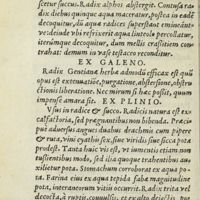 scetur succus. Radix alphos abstergit. Contusa ra-
dix diebus quinque aqua maceratur, postea in eadē
decoquitur, usq; adeo
ut deinde ubi refrixerit aqua linteolo percolatur,
iterumque decoquitur, dum mellis crassitiem con-
trahat: demum in uase testaceo reconditur.
EX GALENO.
Radix Gentianæ herbæ admodū efficax est quū
opus est extenuatiōe, purgatione, abstersione, obstru-
ctionis liberatione. Nec mirum si hæc possit, quum
impensè amara sit. EX PLINIO.
Vsus in radice & succo. Radicis natura est ex-
calfactoria, sed prægnantibus non bibenda. Præci-
puè aduersus angues duabus drachmis cum pipere
& ruta, uini cyathis sex, siue uiridis siue sicca
prodest. Tanta huic uis est, ut iumentis etiam non
tussientibus modo, sed ilia quoque trahentibus au-
xilietur pota. Stomachum corroborat ex aqua po-
ta. Farina eius ex aqua tepida fabæ magnitudine
pota, interaneorum uitiis occurrit. Radix trita uel
decocta, à ruptis, conuulsis, et ex alto deiectis,